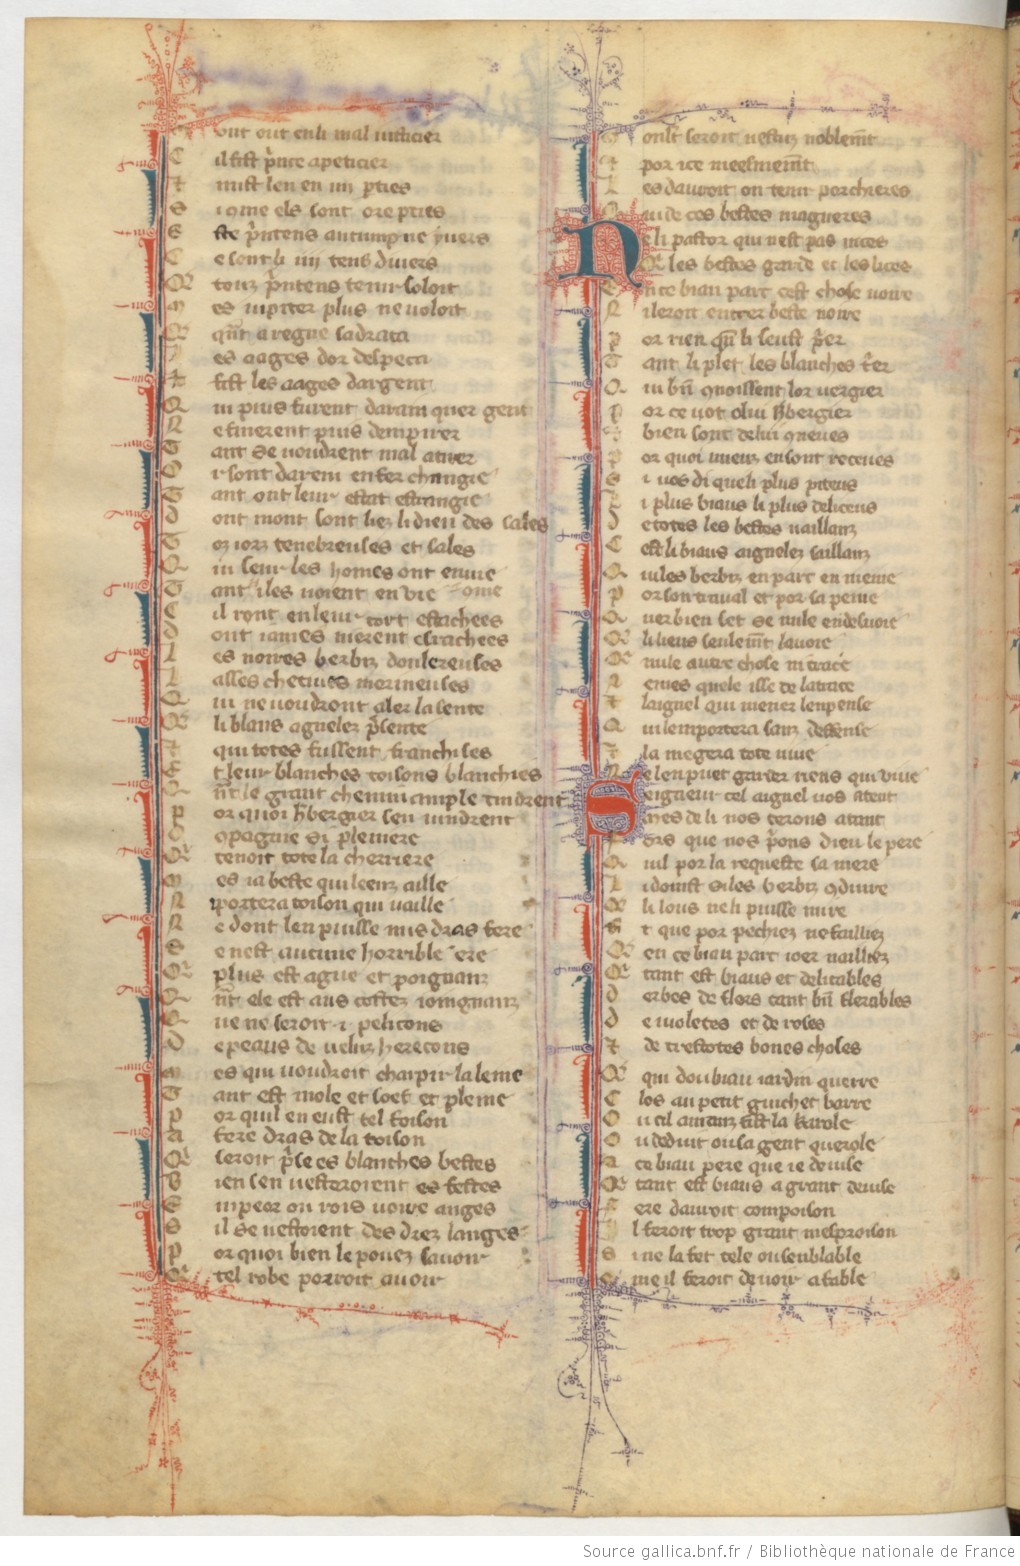 T out out en li mal iusticier
C il fist p̃nce apeticier
t mist len en iiij pties
S i ome els sont ore pties
E ste p̃ntens autumpne ẏuers
C e sont li iiij tens diuers
Q touz p̃ntens tenir soloit
M es iupiter plus ne voloit
Q qñt a regne sadreca
l es aages dor despeca
t fist les aages dargent
Q ui puis furent daram quer gent
N e finerent puis dempirer
T ant se voudrent mal atirer
O r sont darein en fer changie
T ant ont leur estat estrangie
D ont mont sont liez li dieu des sales
T oz iorz tenebreuses et sales
Q ui seur les homes ont enuie
T ant iles voient en vie ome
C il ront en leur tort estachees
D ont iames nierent esrachees
L es noires berbiz doulereuses
L asses chetiues morineuses
Q ui ne voudront aler la sente
Q li blans agnelez p̃sente
t qui totes fussent franchises
E t leur blanches toisons blanchies
Q ñt le grant chemin ample tindrent
P or quoi h̃bergier sen vindrent
O opagnie si pleniere
Q tenoit tote la cherriere
M es ia beste qui leenz aille
N portera toison qui vaille
N e dont len puisse nus dras fere
S e nest aucune horrible ere
Q plus est ague et poignanz
Q ñt ele est aus costez ioingnanz
Q ue ne seroit .i. pelicons
D e peaus de veluz herecons
M es qui voudroit charpir la leine
T ant est mole et soef et pleine
P or quil en eust tel foison
A fere dras de la toison
Q seroit p̃se es blanches bestes
B ien sen vesteroient es festes
E mpeor ou rois voire anges
S il se vestoient des drez langes
P or quoi bien le pouez sauoir
Q tel robe porroit auoir
T oult seroit vestuz noblem̃t
t por ice meesmem̃t
L es dauroit on tenir por chieres
Q ui de ces bestes ma gueres
N e li pastor qui nest pas nices
Q les bestes garde et les lices
E n ce biau parc cest chose voire
N i leroit entrer beste noire
P or rien qũ li seust p̃er
T ant li plet les blanches t̃ier
Q ui bñ qnoissent lor vergier
P or ce vot o lui h̃bergier
bien sont de lui qneues
P or quoi mieuz en sont receues
S i vos di que li plus piteus
L i plus biaus li plus delicteus
D e totes les bestes vaillanz
C est li biaus aignelez saillanz
Q ui les berbiz en parc en meine
P or son trauai et por sa peine
Q uer bien set se nule en desuoie
Q li leus seulem̃t la voie
Q nule autre chose ni trace
N e mes quele isse de la trace
t laignel qui mener len pense
Q ui lemportera sanz deffense
t la megera tote viue
N e len puet garder riens qui viue
S eigneur cel aignel vos atent
M es de li nos terons atant
F ors que nos p̃ons dieu le pere
Q uil por la requeste sa mere
L i doinst si les berbiz qduire
Q li lous ne li puisse nuire
E t que por pechiez ne failliez
Q en ce biau parc ioer nailliez
Q tant est biaus et delitables
D erbes de flors tant bñ flerables
D e violetes et de roses
t de trestotes bones choses
Q qui dou biau iardin querre
C los au petit guichet barre
O u cil amanz fist la karole
O u deduit ou sa gent querole
A ce biau pere que ie deuise
Q tant est biaus a grant deuise
F ere dauroit compoison
I l feroit trop grant mesprison
S i ne la fet tele ou senblable
C me il feroit de voir a fable